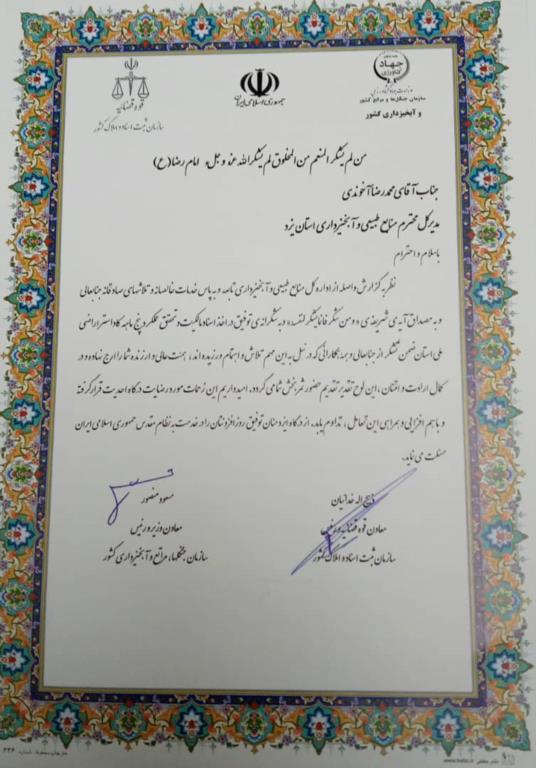 جهاد
کشاورزی
سازمان جنگل‌ها و مراتع کشور
و آبخیزداری کشور
جمهوری اسلامی ایران
قوه قضائیه
سازمان ثبت اسناد و املاک کشور
من لم یشکر المنعم من المخلوق لم یشکر الله عز و جل. امام رضا (ع)
جناب آقای محمدرضا آخوندی
مدیرکل محترم منابع طبیعی و آبخیزداری استان یزد
با سلام و احترام
نظر به گزارش واصله از اداره کل منابع طبیعی و آبخیزداری تابعه و به پاس خدمات خالصانه و تلاشهای صادقانه جنابعالی
و به مصداق آیه‌ی شریفه‌ی « و من شکر فانما یشکر لنفسه » و به شکرانه‌ی توفیق در اخذ اسناد مالکیت و تحقق عملکرد پنج ماهه کاداستر اراضی
ملی استان ضمن تشکر از جنابعالی و همه همکارانی که در نیل به این مهم تلاش و اهتمام ورزیده‌اند، همت عالی و ارزنده شما را ارج نهاده و در
کمال ارادت و امتنان، این لوح تقدیر تقدیم حضور ثمربخش شما می گردد. امید داریم این زحمات مورد رضایت درگاه احدیت قرار گرفته
و با هم افزایی و همراهی این تعامل، تداوم یابد. از درگاه ایزد منان توفیق روز افزونتان را در خدمت به نظام مقدس جمهوری اسلامی ایران
مسئلت می نماید.
ذبیح اله خدائیان
معاون قوه قضائیه و رئیس
سازمان ثبت اسناد و املاک کشور
مسعود منصور
معاون وزیر و رئیس
سازمان جنگلها، مراتع و آبخیزداری کشور